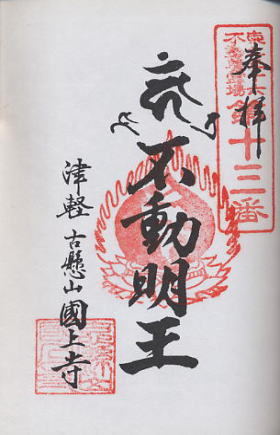 奉拝
第十三番
不動明王
津軽 古懸山 國上寺